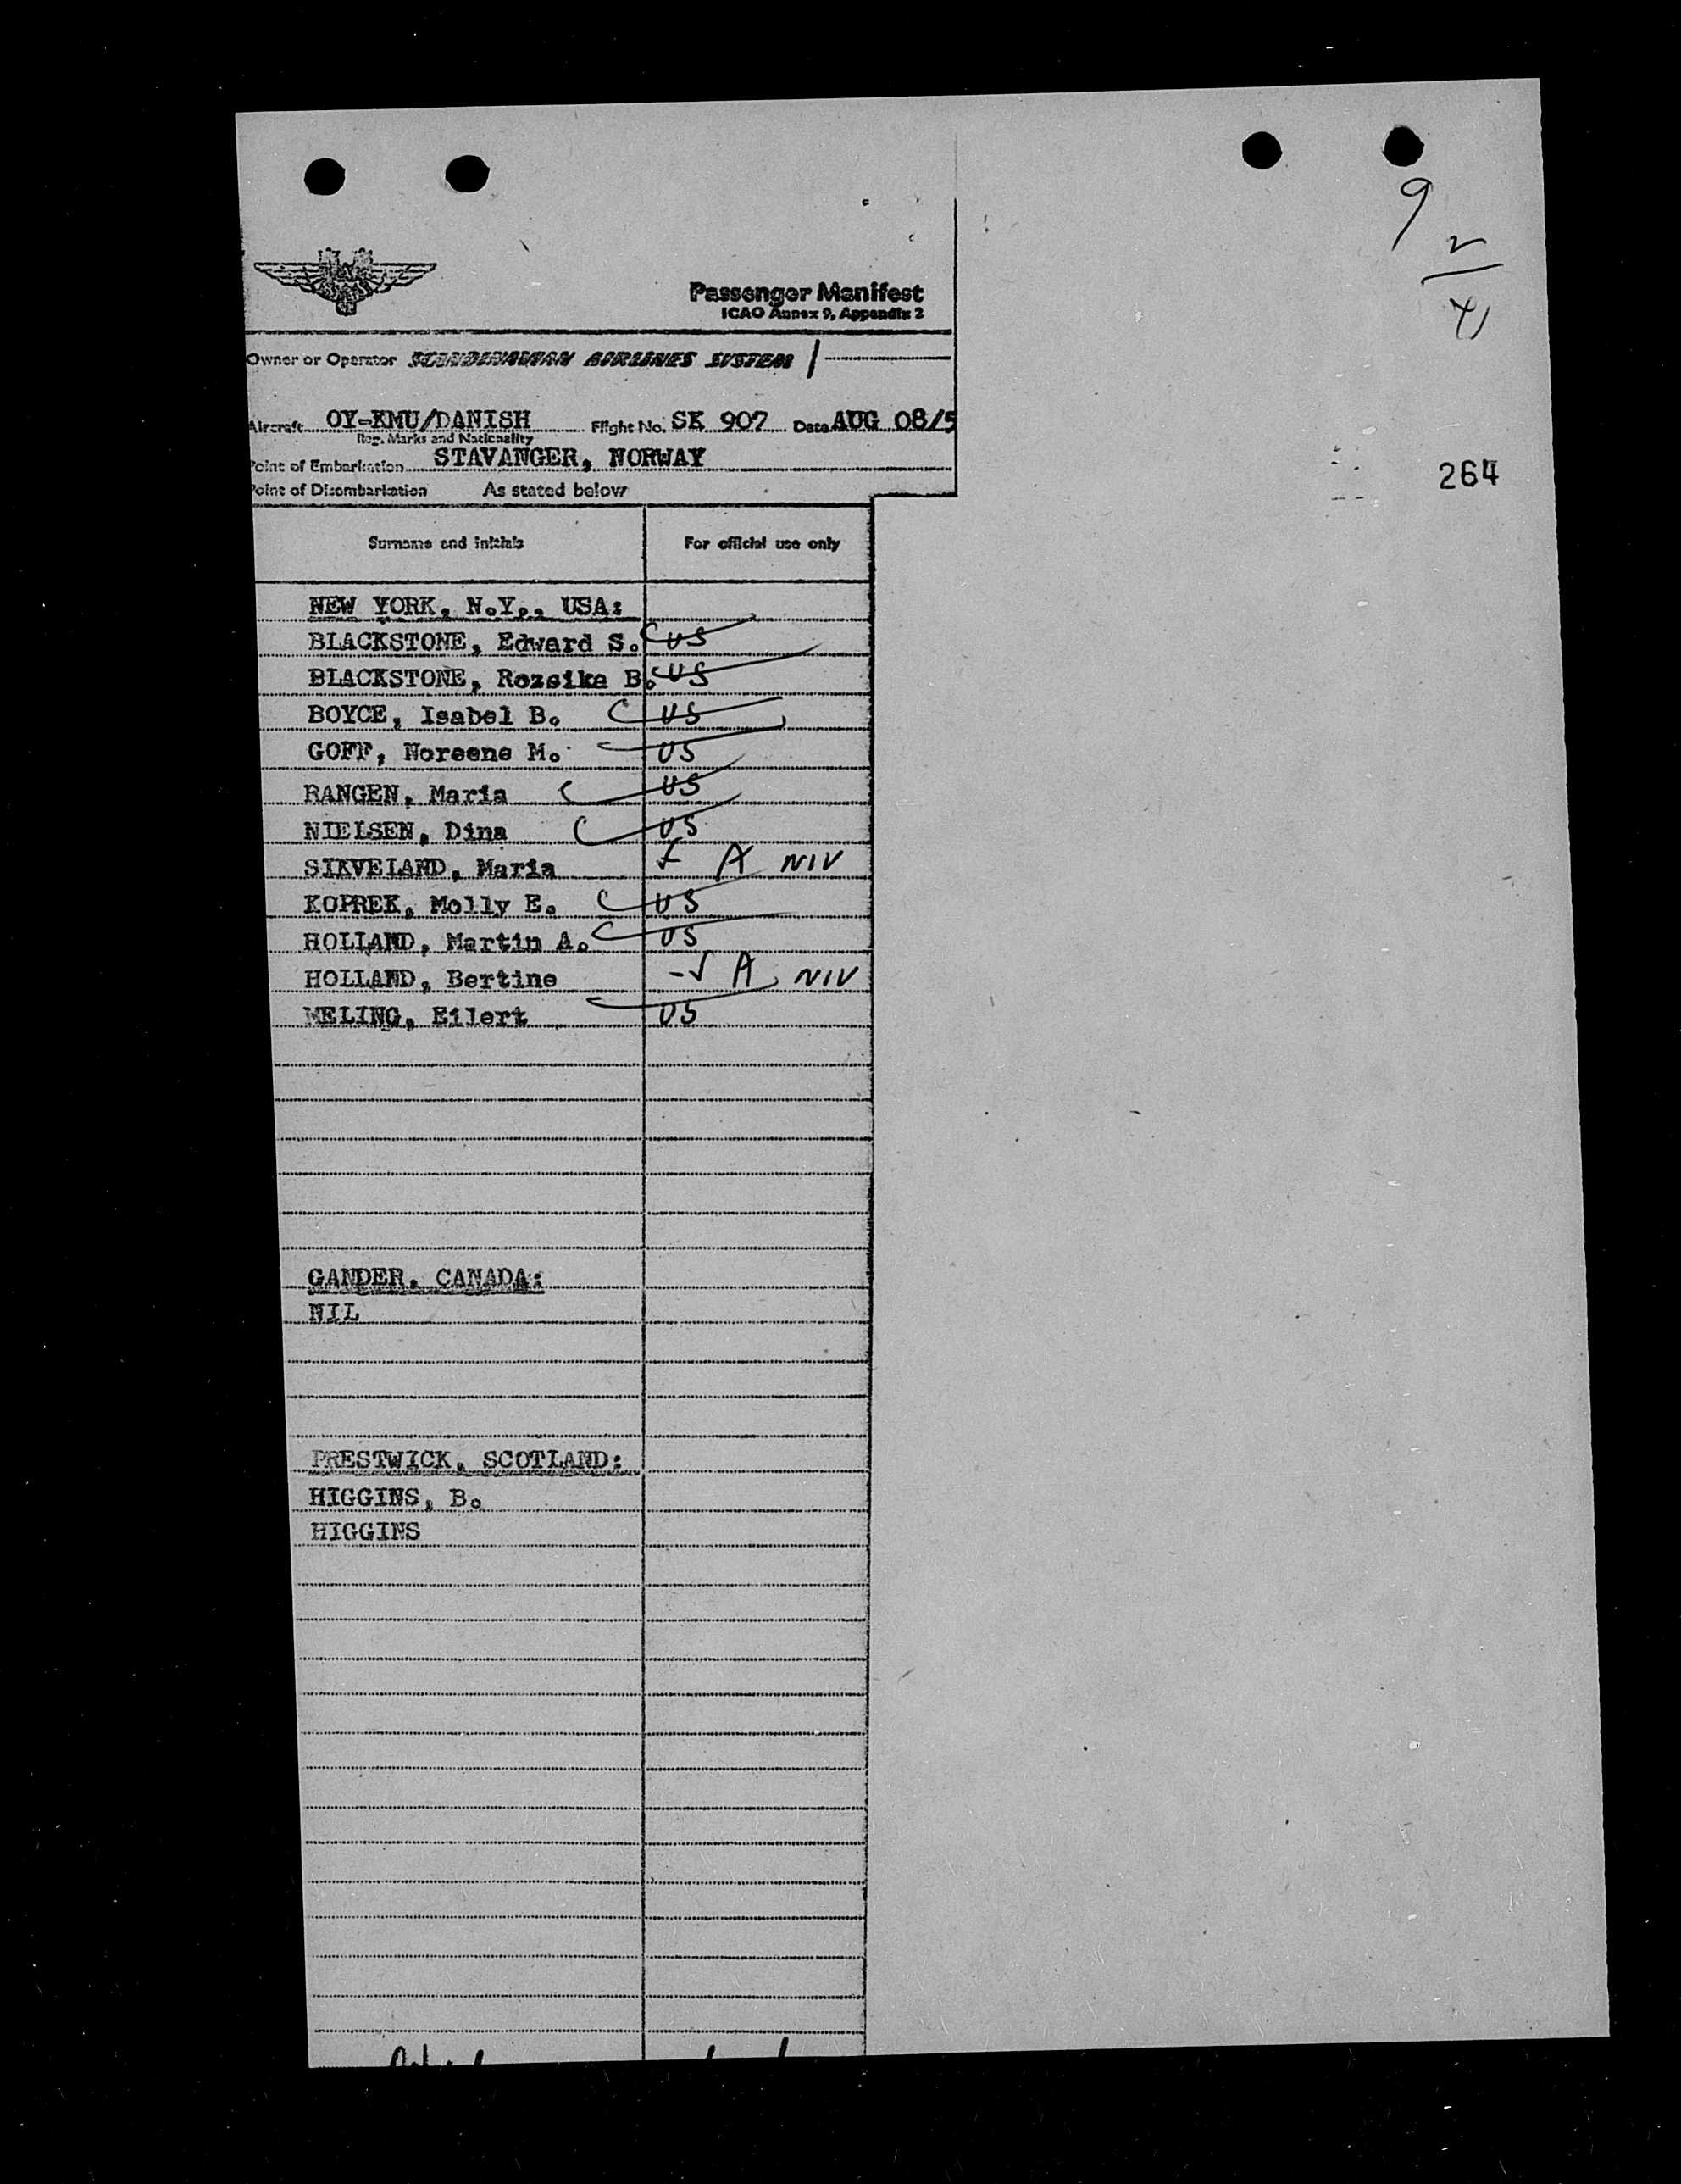 9
2
41
Passenger Manifest
ICAO Annex 9, Appendix 2
Owner or Operator SCANDINAVIAN AIRLINES SYSTEM
Aircraft OY-KMU/DANISH Flight No. SK 907 Date AUG 08/5
Reg. Marks and Nationality
Point of Embarkation STAVANGER, NORWAY
264
Point of Disembarkation As stated below
Surname and initials For official use only
NEW YORK, N.Y., USA:
BLACKSTONE, Edward S. US
BLACKSTONE, Rozsika B. US
BOYCE, Isabel B. US
GOFF, Noreene M. US
RANGEN, Maria US
NIELSEN, Dina US
SIKVELAND, Maria A NIV
KOPREK, Molly E. US
HOLLAND, Martin A. US
HOLLAND, Bertine A NIV
MELING, Eilert US
GANDER, CANADA:
NIL
PRESTWICK, SCOTLAND:
HIGGINS, B.
HIGGINS